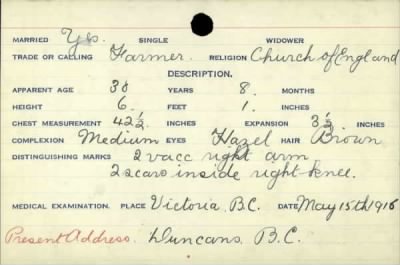 MARRIED Yes. SINGLE WIDOWER
TRADE OR CALLING Farmer. RELIGION Church of England
DESCRIPTION.
APPARENT AGE 30 YEARS 8. MONTHS
HEIGHT 6. FEET 1. INCHES
CHEST MEASUREMENT 42½ INCHES EXPANSION 3½ INCHES
COMPLEXION Medium EYES Hazel HAIR Brown
DISTINGUISHING MARKS 2 vacc right arm
2 scars inside right knee.
MEDICAL EXAMINATION. PLACE Victoria, B.C. DATE May 15th 1916
Present Address. Duncans, B.C.